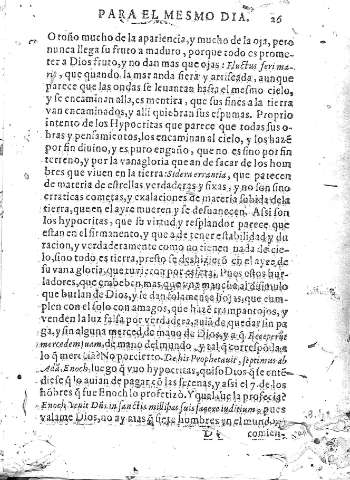 PARA EL MESMO DIA. 26
Otoño mucho de la apariencia, y mucho de la oja, pero
nunca llega su fruto a maduro, porque todo es prome-
ter a Dios fruto, y no dan mas que ojas: Fluctus feri ma-
ris, que quando la mar anda fiera y arriscada, aunque
parece que las ondas se leuantan hasta el mesmo cielo,
y se encaminan alla, es mentira, que sus fines a la tierra
van encaminados, y alli quiebran sus espumas. Proprio
intento de los Hypocritas que parece que todas sus o-
bras y pensamientos, los encaminan al cielo, y los hazē
por fin diuino, y es puro engaño, que no es sino por fin
terreno, y por la vanagloria que an de sacar de los hom
bres que viuen en la tierra Sidera errantia, que parecen
de materia de estrellas verdaderas y fixas, y no son sino
erraticas cometas, y exalaciones de materia subida de la
tierra, que en el ayre mueren y se desuanecen. Assi son
los hypocritas, que su virtud y resplandor parece que
estan en el firmamento, y que a de tener estabilidad y du
racion, y verdaderamente como no tienen nada de cie-
lo, sino todo es tierra, presto se deshizierō en el ayre de
su vana gloria, que tuuieron por esfera. Pues estos bur-
ladores, que
que burlan de Dios, y se dan solamente hojas, que cum-
plen con el solo con amagos, que hazē trampantojos, y
venden la luz falsa por verdadera, auiā de quedar sin pa
ga, y sin alguna merced de mano de Dios, y a Receperūt
mercedem suam, de mano del mundo, y tal q̄ corresponda a
lo q̄ mercia? No por cierto. De his Prophetauit, septimus ab
Adā, Enoch, luego q̄ vuo hypocritas, quiso Dios q̄ se entē
diesse q̄ lo auian de pagar cō las setenas, y assi el 7. de los
hōbres q̄ fue Enoch lo profetizò. Y qual fue la profecia?
Enoch, Venit Dn̄s in sanctis millibus suis facere iuditium, pues
valame Dios, no ay mas q̄ hōbres en el mundo,
D 2 comien-